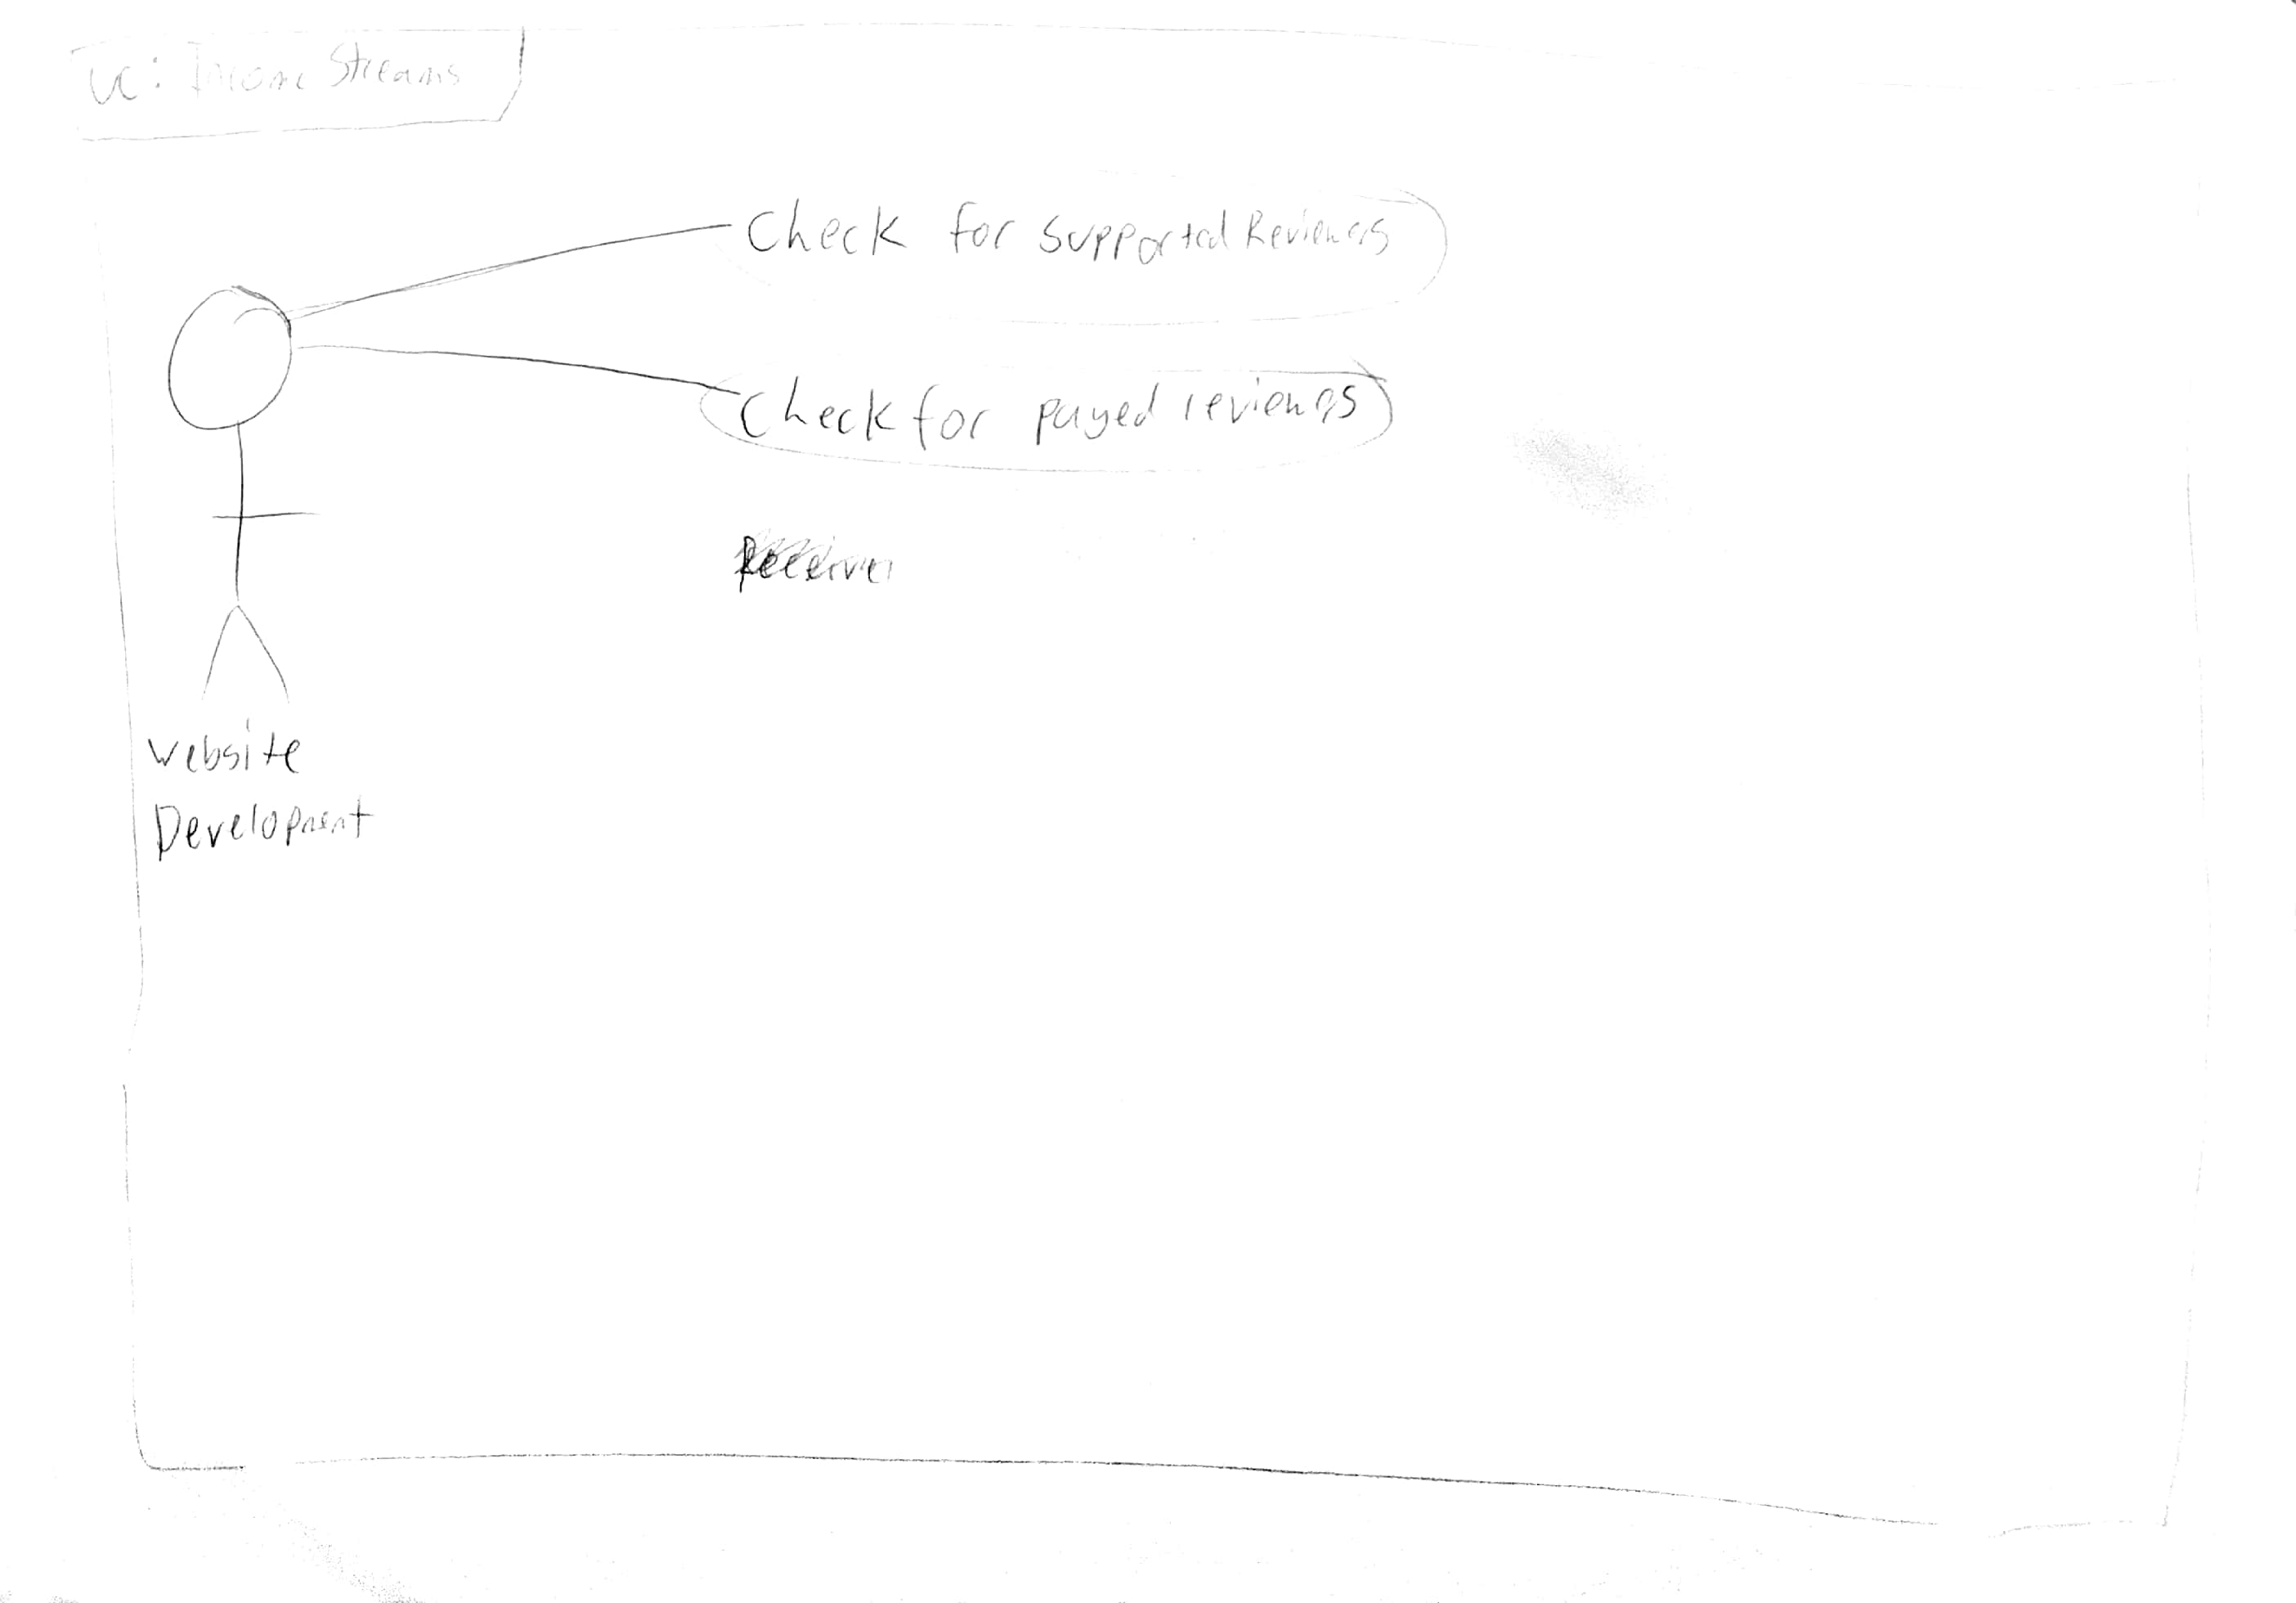 UC: Income Streams
Check for supported Reviewers
Check for payed reviewers
Website
Development